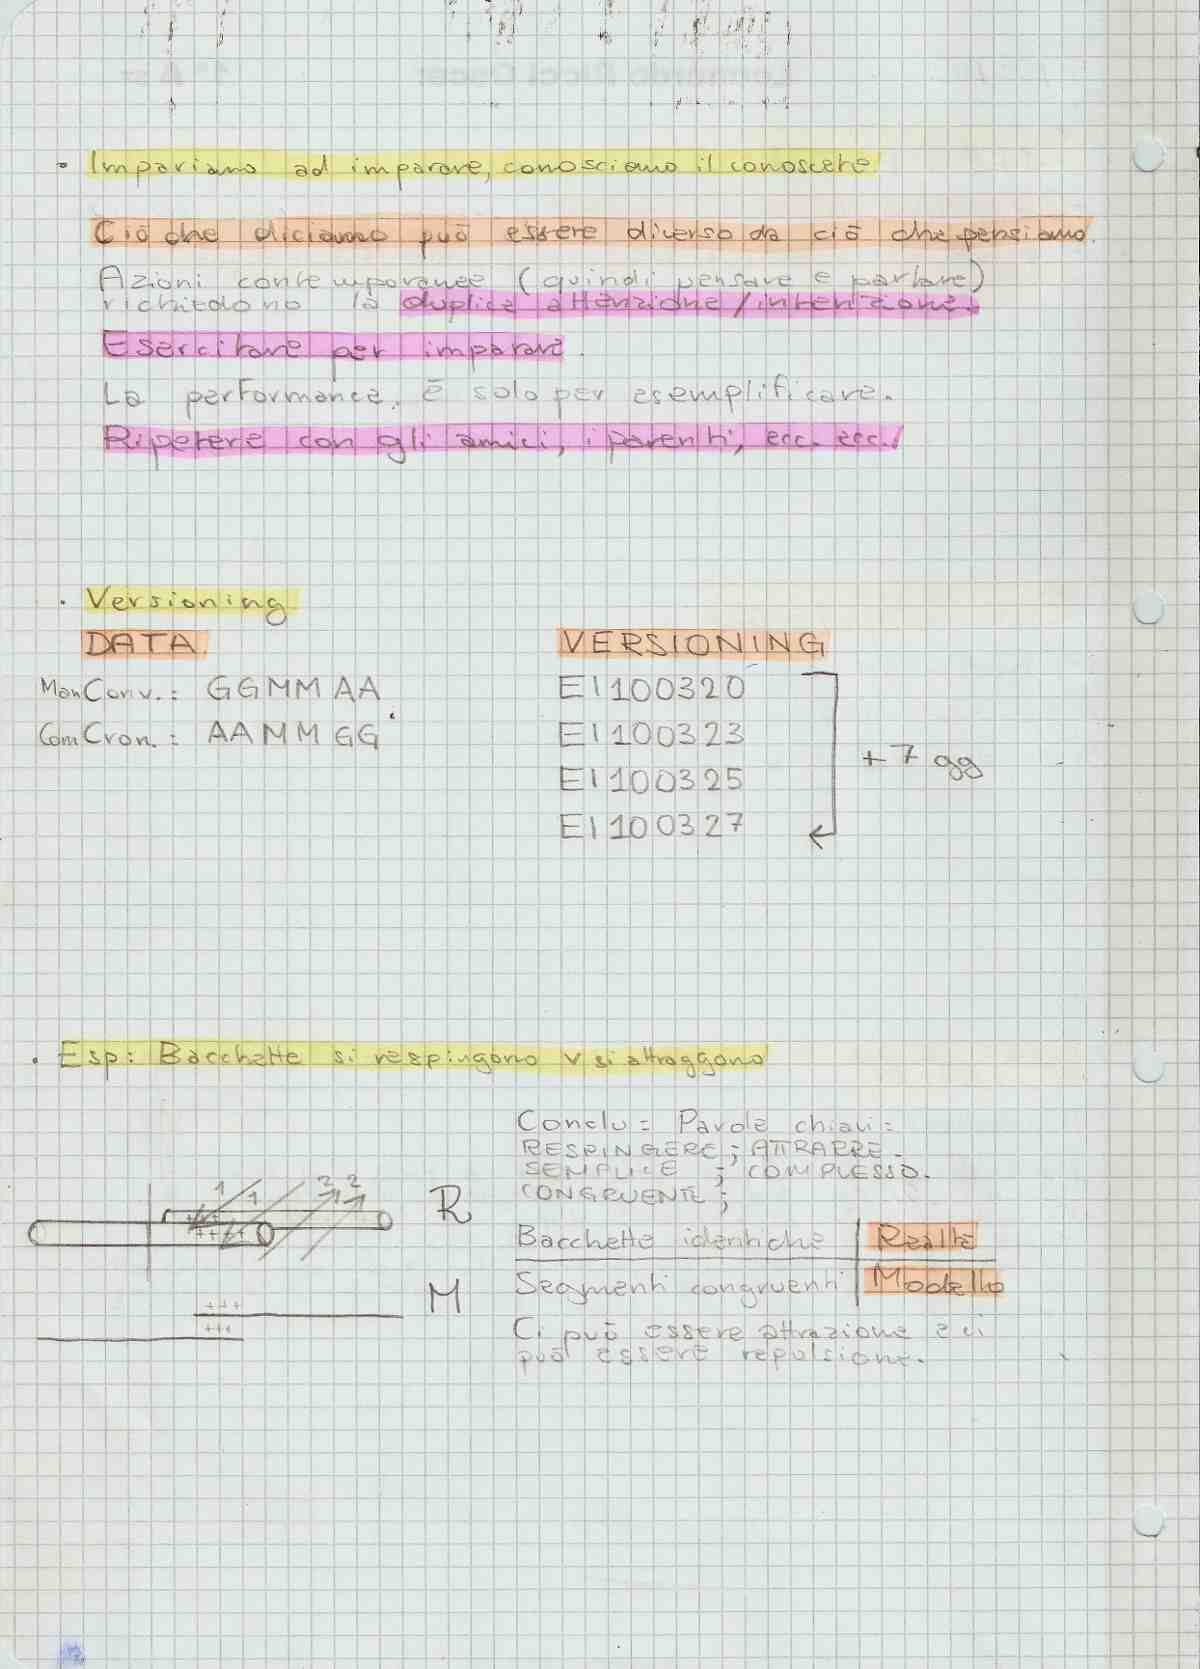 · Impariamo ad imparare, conosciamo il conoscere.
Ciò che diciamo può essere diverso da ciò che pensiamo.
Azioni contemporanee (quindi pensare e parlare)
richiedono la duplice attenzione/intenzione.
Esercitare per imparare.
La performance, è solo per esemplificare.
Ripetere con gli amici, i parenti, ecc. ecc./
· Versioning
DATA
ManConv.: GGMMAA
ComCron.: AAMMGG
VERSIONING
EI100320
EI100323
EI100325
EI100327
+7 gg
· Esp: Bacchette si respingono v si attraggono
1 1 2 2
++ ++++
R
+++
+++
M
Conclu: Parole chiavi:
RESPINGERE; ATTRARRE.
SEMPLICE ; COMPLESSO.
CONGRUENTE;
Bacchette identiche | Realtà
Segmenti congruenti | Modello
Ci può essere attrazione e ci
può essere repulsione.